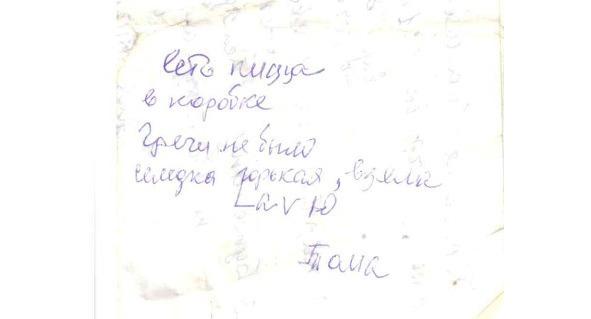 Есть пицца
в коробке
Гречи не было
селедка горькая, взяла
Lav Ю
Тома